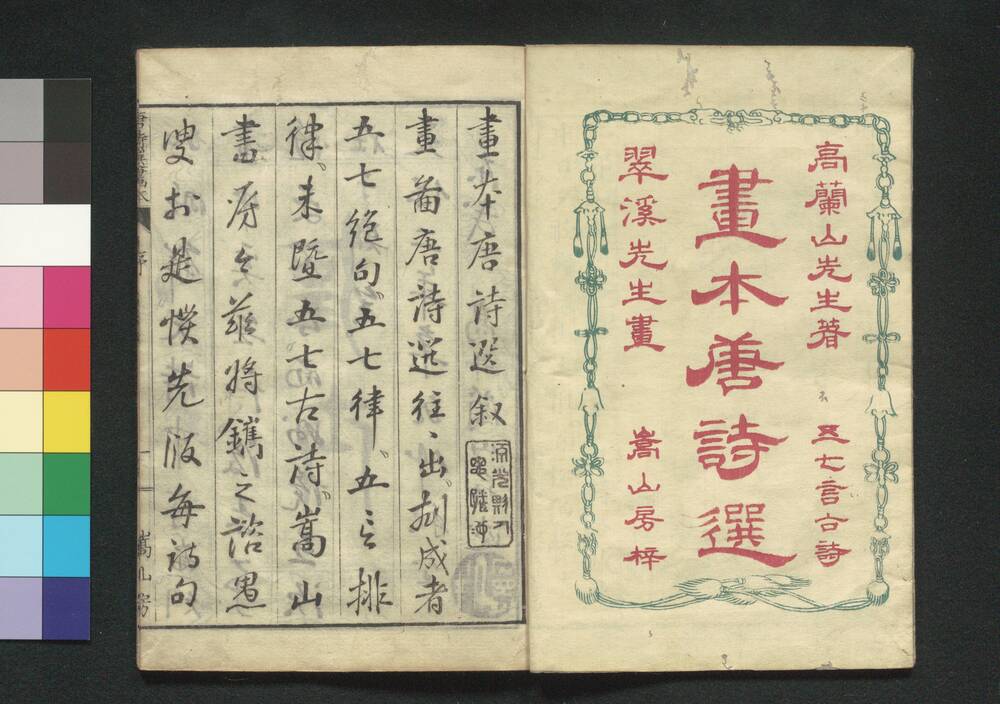 高蘭山先生著
五七言古詩
畫本唐詩選
翠溪先生畫
嵩山房梓
畫本唐詩選叙
畫啚唐詩選往〻出刻成者
五七絶句五七律五言排
律未暨五七古詩嵩山
書房今茲將鐫之諮愚
叟於是慔先版每詩句
嵩山房